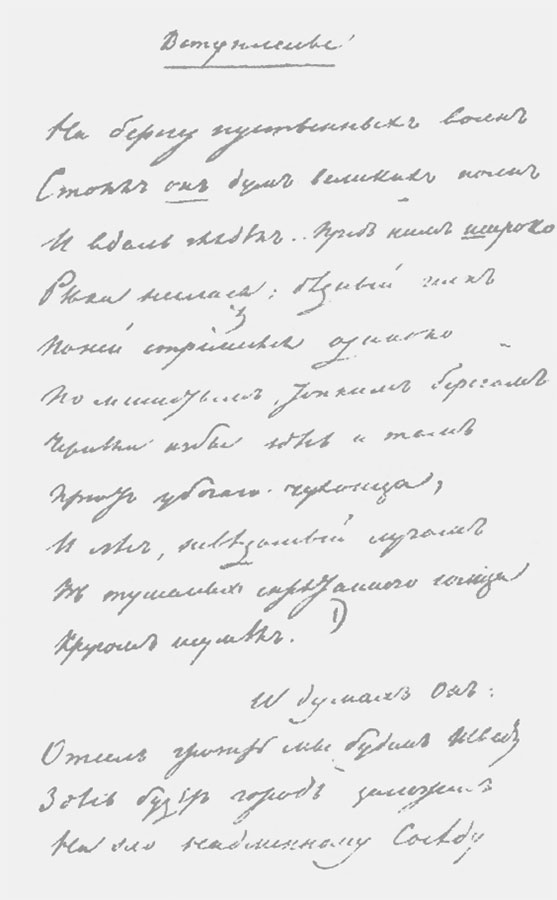 Вступленье
На берегу пустынныхъ волнъ
Стоялъ онъ думъ великихъ полнъ
И вдаль глядѣлъ.. Предъ нимъ широко
Рѣка неслася; бѣдный челнъ
По ней стремился одиноко
По мшистымъ, топкимъ берегамъ
Чернѣли избы здѣсь и тамъ
Пріютъ убогаго чухонца,
И лѣсъ, невѣдомый лучамъ
Въ туманѣ спрятаннаго солнца
Кругомъ шумѣлъ. 1)
И думалъ Онъ:
Отсель грозить мы будемъ Шведу
Здѣсь будетъ городъ заложенъ
На зло надменному Сосѣду